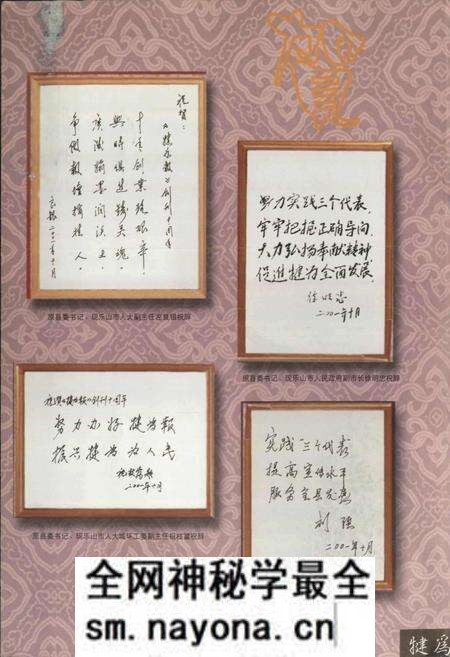 祝贺：
《犍为报》创刊十周年
十年创业 艰辛，
與時俱進鑄英魂。
翰墨润沃土，
二〇〇一年十月
原县委书记、现乐山市人大副主任 祝辞
努力实践三个代表，
牢牢把握正确导向，
大力弘扬奉献精神，
促進犍为全面发展。
徐明忠
二〇〇一年十月
原县委书记、现乐山市人民政府副市长徐明忠祝辞
祝贺《犍为报》创刊十周年
努力办好犍为报
振兴犍为为人民
二〇〇一年十月
原县委书记、现乐山市人大城环工委副主任 祝辞
实践“三个代表”
提高宣传水平
服务全县发展
刘强
二〇〇一年十月
犍爲
全网神秘学最全
sm.nayona.cn